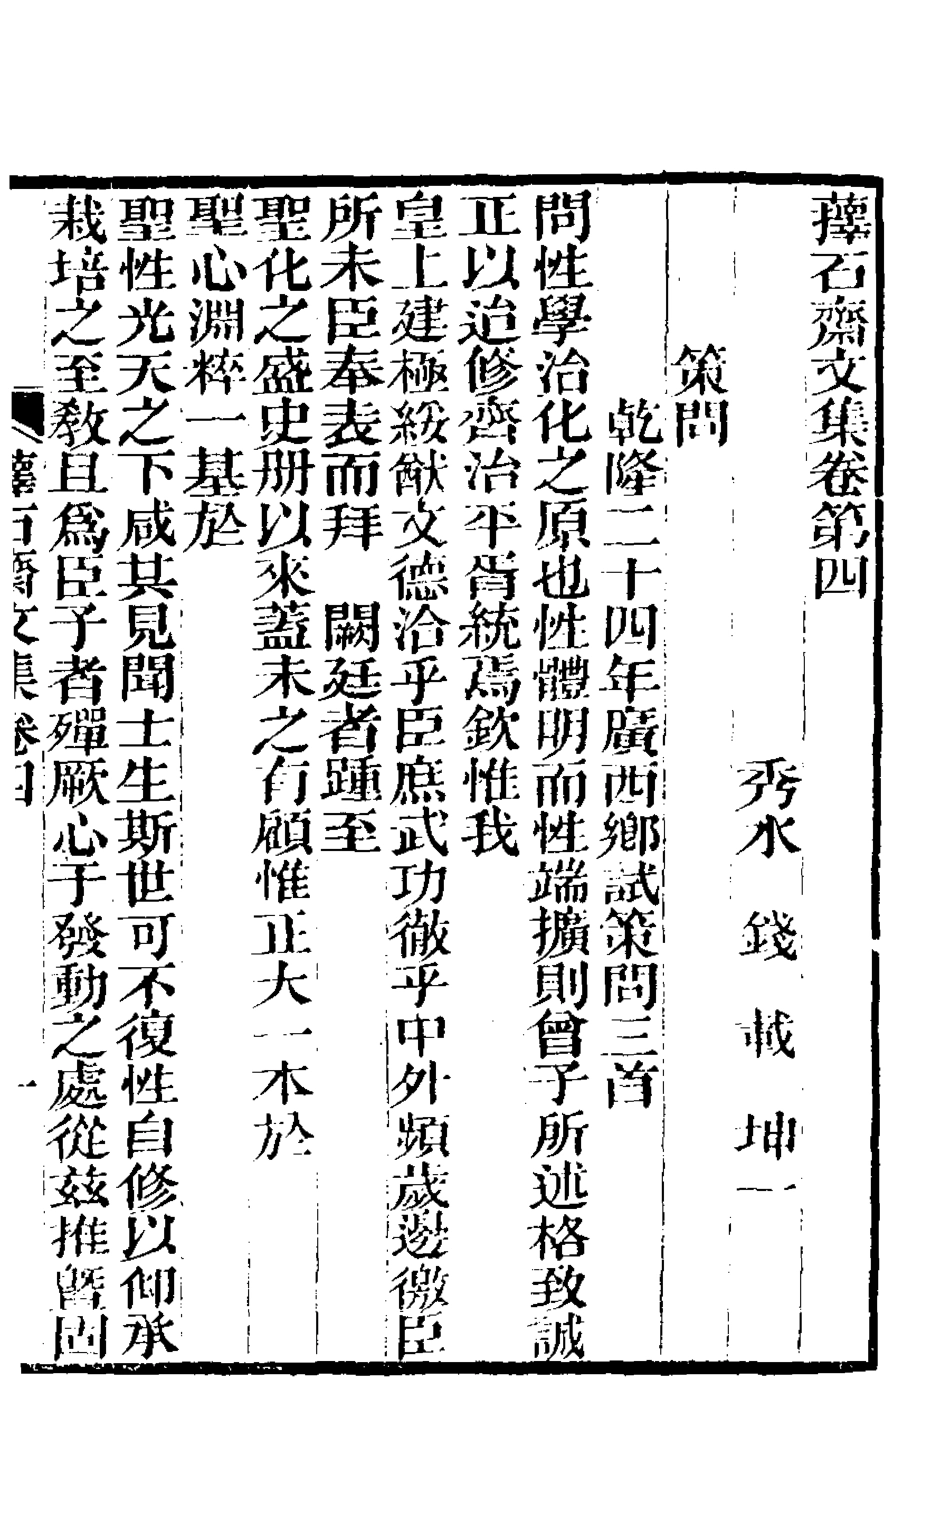 蘀石齋文集卷第四
秀水錢載坤一
策問
乾隆二十四年廣西鄉試策問三首
問性學治化之原也性體明而性端擴則曾子所述格致誠
正以迨修齊治平胥統焉欽惟我
皇上建極綏猷文德洽乎臣庶武功徹乎中外頻歲邊徼臣
所未臣奉表而拜 闕廷者踵至
聖化之盛史册以來蓋未之有顧惟正大一本於
聖心淵粹一基於
聖性光天之下咸其見聞士生斯世可不復性自修以仰承
栽培之至教且爲臣子者殫厥心于發動之處從茲推曁固
蘀石齋文集卷四
一